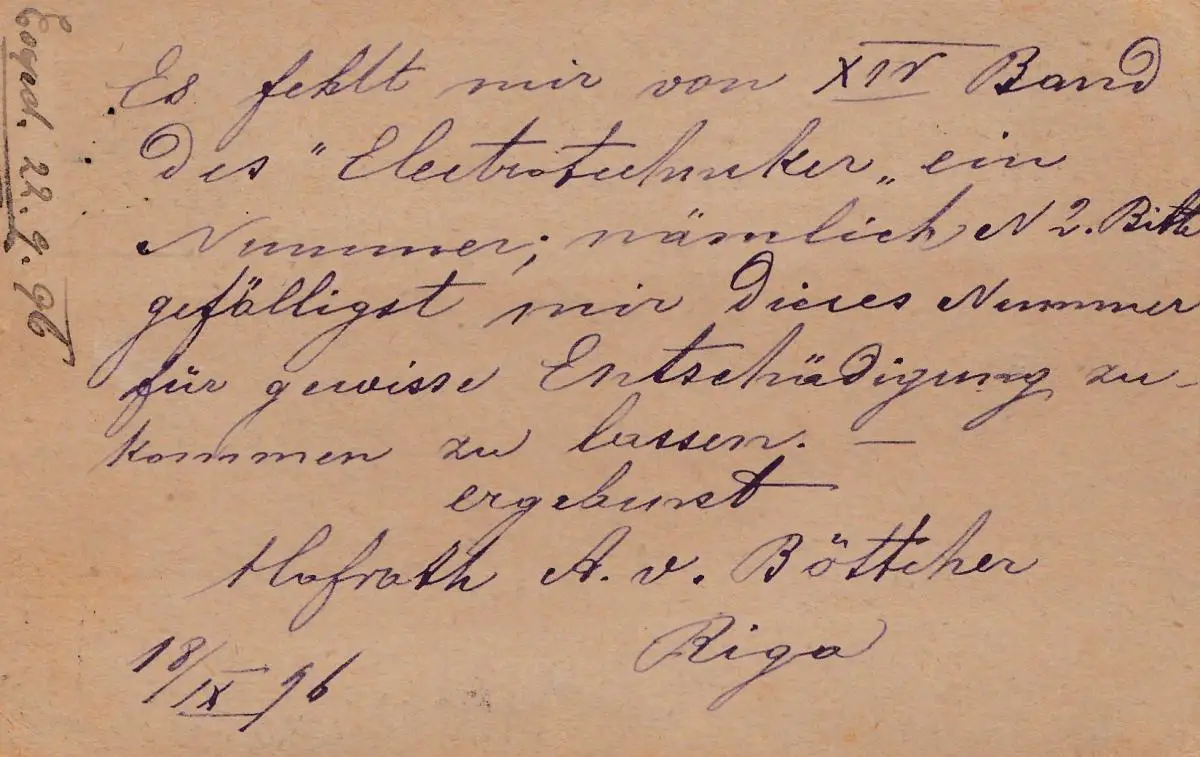 Es fehlt mir von XIV Band
des "Electrotechniker„ ein
Nummer; nämlich N 2. Bitte
gefälligst mir dieses Nummer
für gewisse Entschädigung zu-
kommen zu lassen. —
ergebenst
Hofrath A. v. Böttcher
Riga
18/IX 96
22.9.96